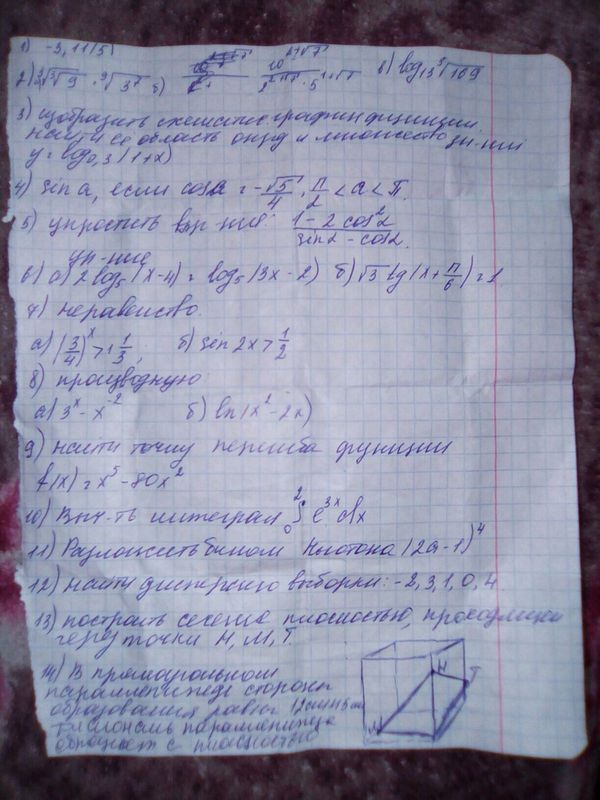 1) -3,11(5)
2) ∛9 · ∛3⁷ б) 10^(2+√7) / 2^(2+√7) · 5^(1+√7) в) log₁₃ ⁵√169
3) изобразить схематич. график функции.
найти ее область опред и множество зн-ний
y = log₀,₃ (1+x)
4) sin a, если cos a = -√5/4, П/2 < a < П.
5) упростить выр-ние: 1 - 2 cos²2 / sin2 - cos2.
ур-ние
6) а) 2 log₅ (x-4) = log₅ (3x-2) б) √3 tg (x + П/6) = 1
7) неравенство.
а) (3/4)^x > 1 1/3, б) sin 2x > 1/2
8) производную
а) 3^x - x^-2 б) ln (x² - 2x)
9) найти точку перегиба функции
f(x) = x⁵ - 80x²
10) Выч-ть интеграл ₀∫² e^3x dx
11) Разложить бином Ньютона (2a-1)⁴
12) найти дисперсию выборки: -2, 3, 1, 0, 4
13) построить сечение плоскостью, проходящей
через точки Н, М, Т.
14) В прямоугольном
параллепипеде стороны
образования равны 12см и 5 см
диагональ параллепипеда
образует с плоскостью
Н
Т
М